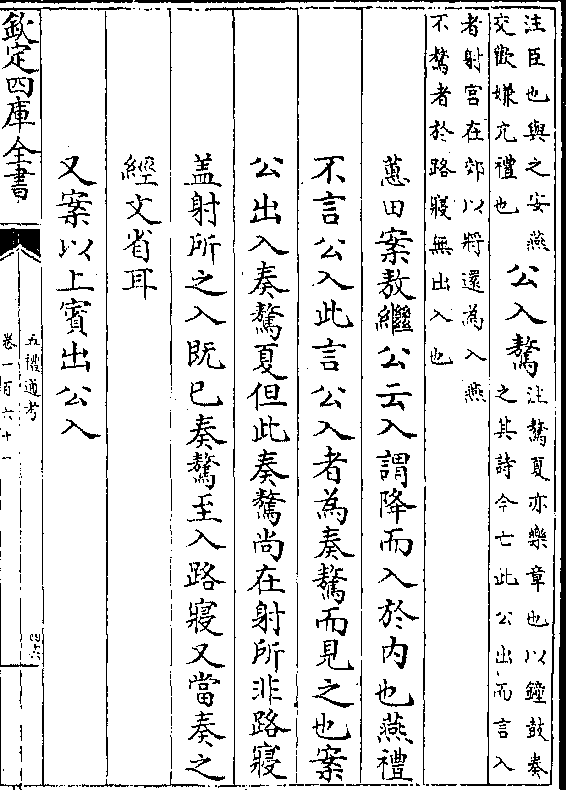 注臣也與之安燕
交歡嫌亢禮也
公入驁
注驁夏亦樂章也以鐘鼓奏
之其詩今亡此公出而言入
者射宮在郊以將還為入燕
不驁者於路寢無出入也
蕙田案敖繼公云入謂降而入於内也燕禮
不言公入此言公入者為奏驁而見之也案
公出入奏驁夏但此奏驁尚在射所非路寢
盖射所之入既已奏驁至入路寢又當奏之
經文省耳
又案以上賓出公入
欽定四庫全書
五禮通考
卷一百六十一